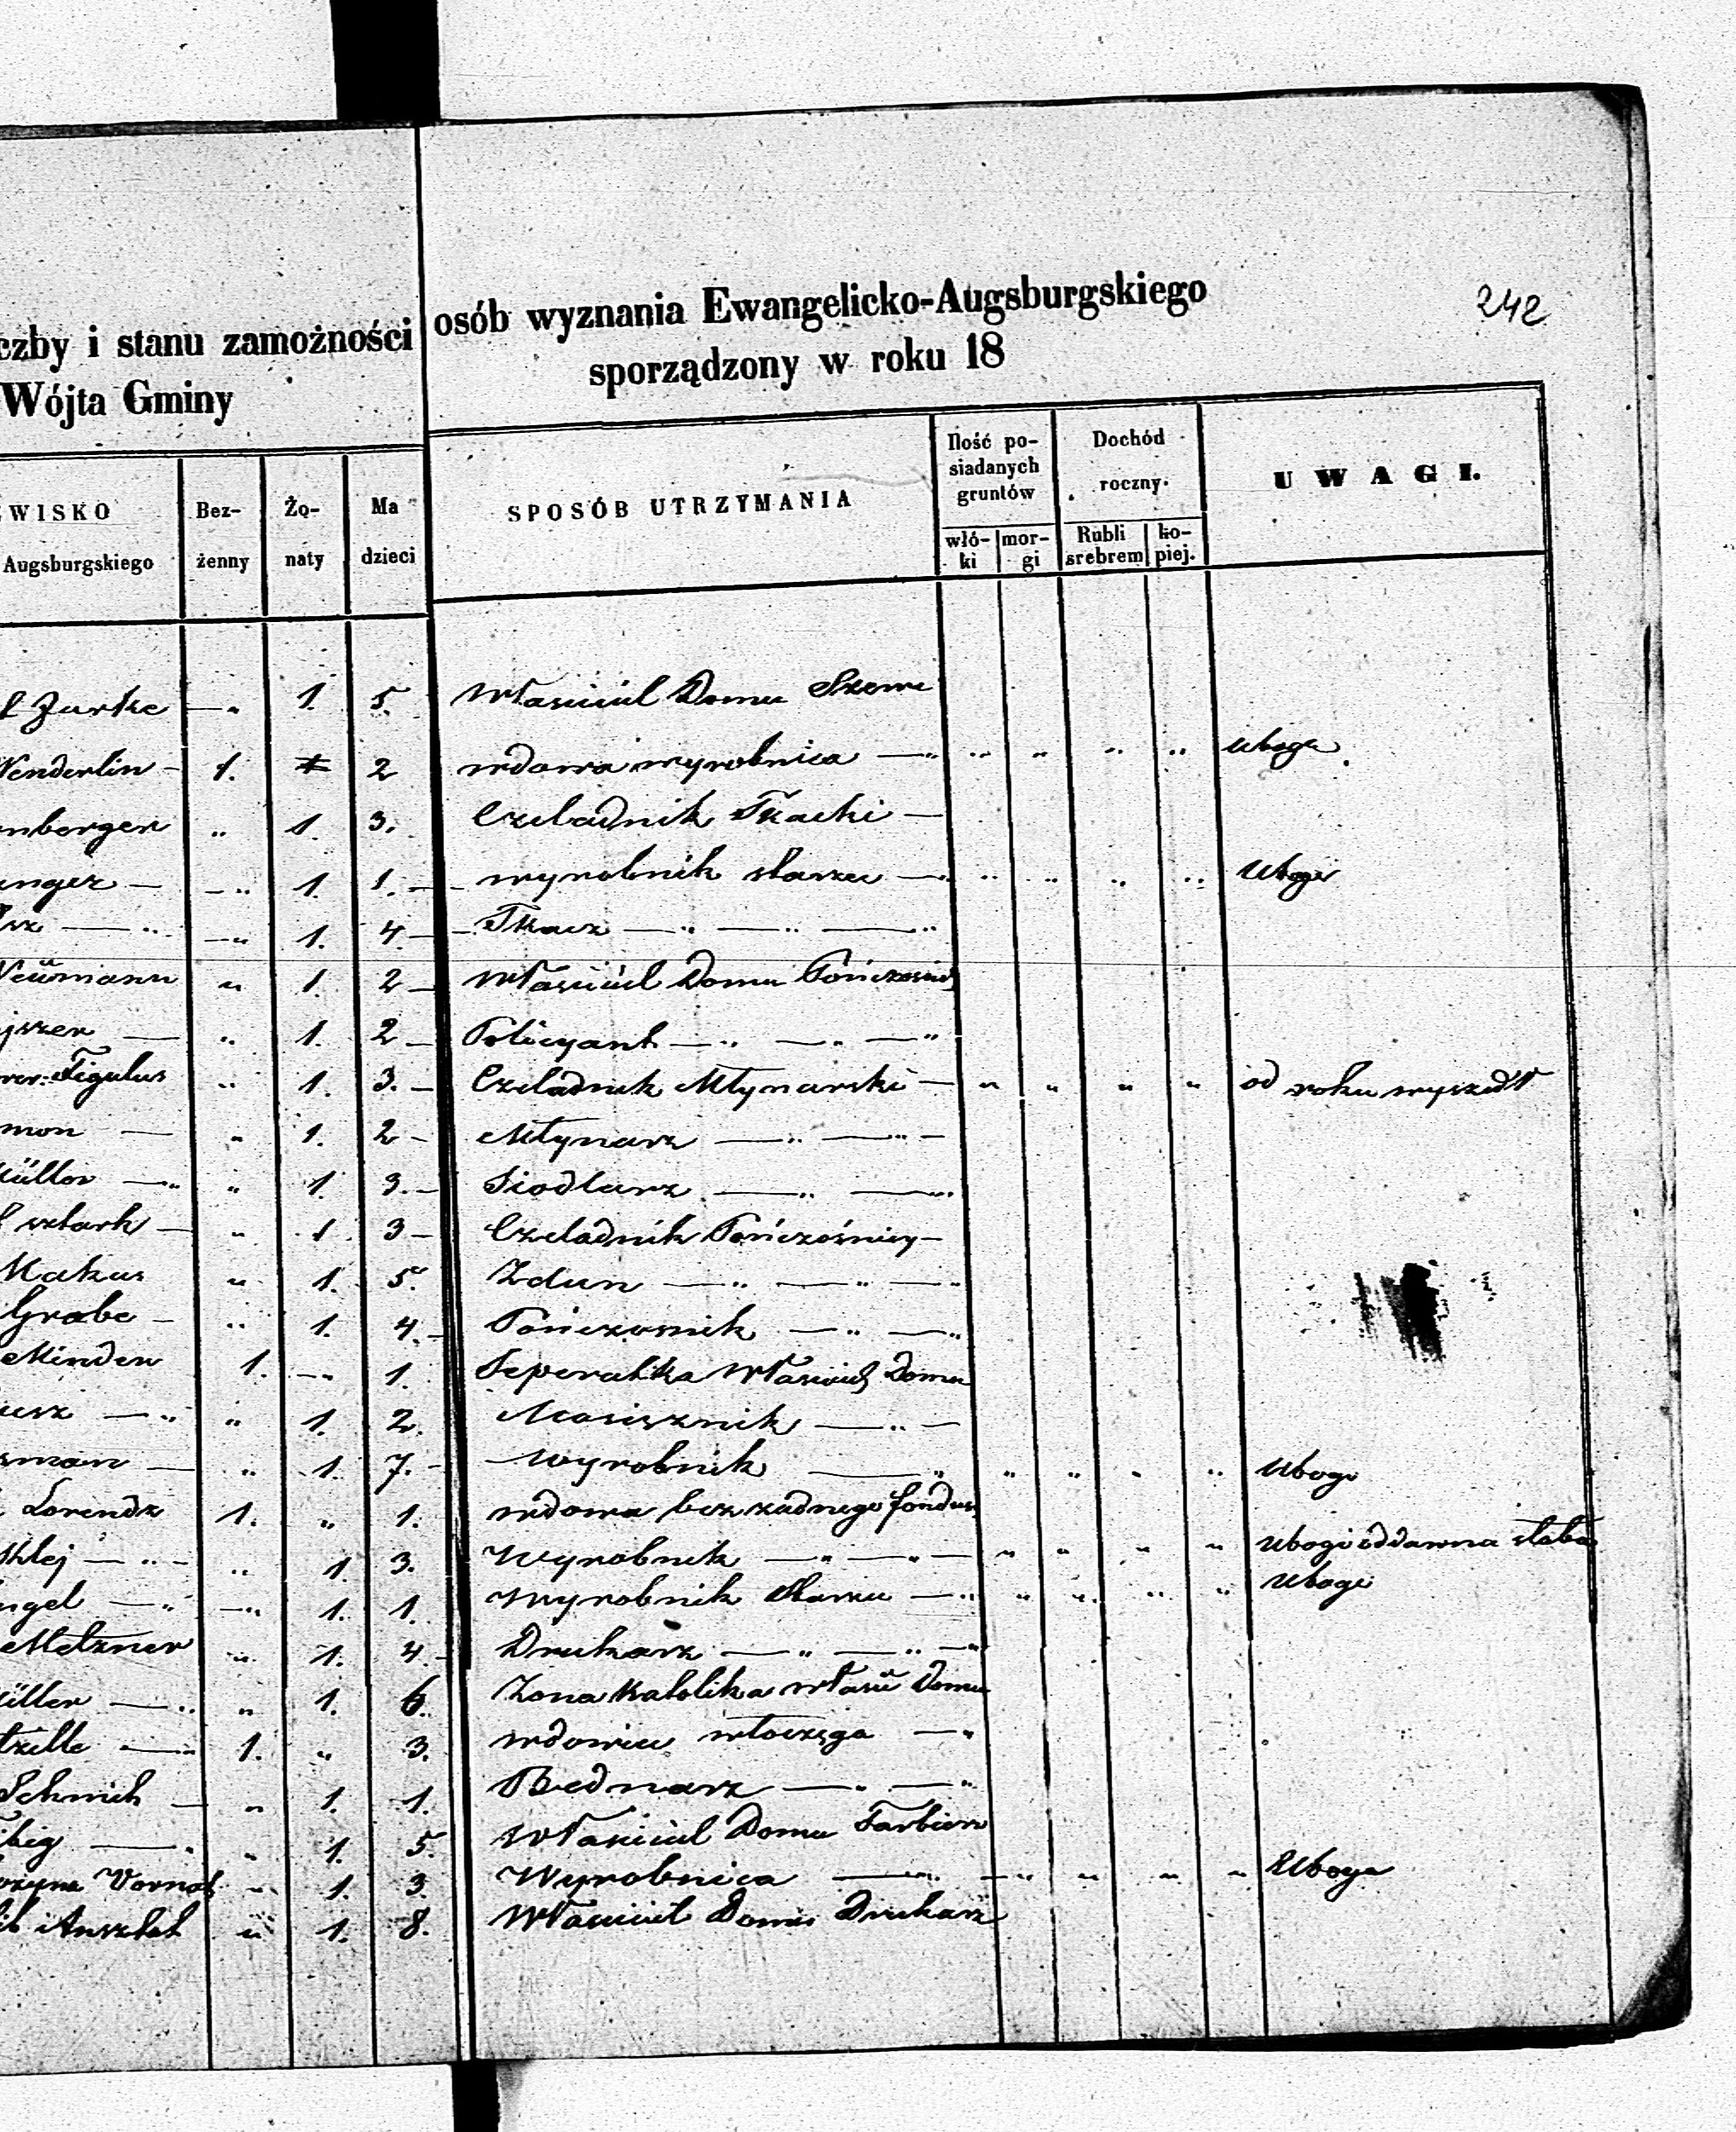 242
czby i stanu zamożności osób wyznania Ewangelicko-Augsburgskiego
Wójta Gminy sporządzony w roku 18
WISKO Augsburgskiego Bez-żenny Żo-naty Ma dzieci SPOSÓB UTRZYMANIA Ilość po-siadanych gruntów Dochód roczny. UWAGI.
włó-ki mor-gi Rubli srebrem ko-piej.
Zurke — „ 1. 5. Własciciel Domu Szewc
Wenderlin — 1. 2 wdowa wyrobnica — „ „ „ „ „ uboga
nberger „ 1. 3. Czeladnik Tkacki —
unger — — „ 1. 1. — wyrobnik starzec — „ „ „ „ „ Ubogi
— „ — „ 1. 4. — Tkacz — „ — „ — „
Neümann „ 1. 2 — Własciciel Domu
jszer — „ 1. 2 — Policyant — „ — „ — „
Figulus „ 1. 3. — Czeladnik Młynarski — „ „ „ „ od roku wyszedł
mon — „ 1. 2 — Młynarz — „ — „ —
Müller — „ „ 1. 3. — Siodlarz — „ — „
sztark — „ 1 3 — Czeladnik Pończośnicy —
Makus „ 1. 5. Zdun — „ — „ — „
Grabe — „ 1. 4. — Pończosnik — „ — „
Minden 1. — „ 1. Seperatka Domu
usz — „ „ 1. 2. Mosisznik — „ —
sman — „ 1. 7. — Wyrobnik — „ „ „ „ „ Ubogi
Lorendz 1. „ 1. wdowa bez zadnego fondus
klej — „ — „ 1. 3. Wyrobnik — „ — „ — „ „ „ „ ubogi oddawna słaba
ngel — „ — „ 1. 1. Wyrobnik Starzec — „ „ „ „ „ Ubogi
Metzner „ 1. 4. — Drukarz — „ — „ — „
üller — „ „ 1. 6. Zona Katolika Domu
tzelle — „ 1. „ 3. wdowiec włoczęga — „
Schmich — „ 1. 1. Bednarz — „ — „
big — „ „ 1. 5. Własciciel Domu Farbierz
Vornat „ 1. 3. Wyrobnica — „ — „ „ „ „ Uboga
Ansztat „ 1. 8. Własciciel Domu Drukarz